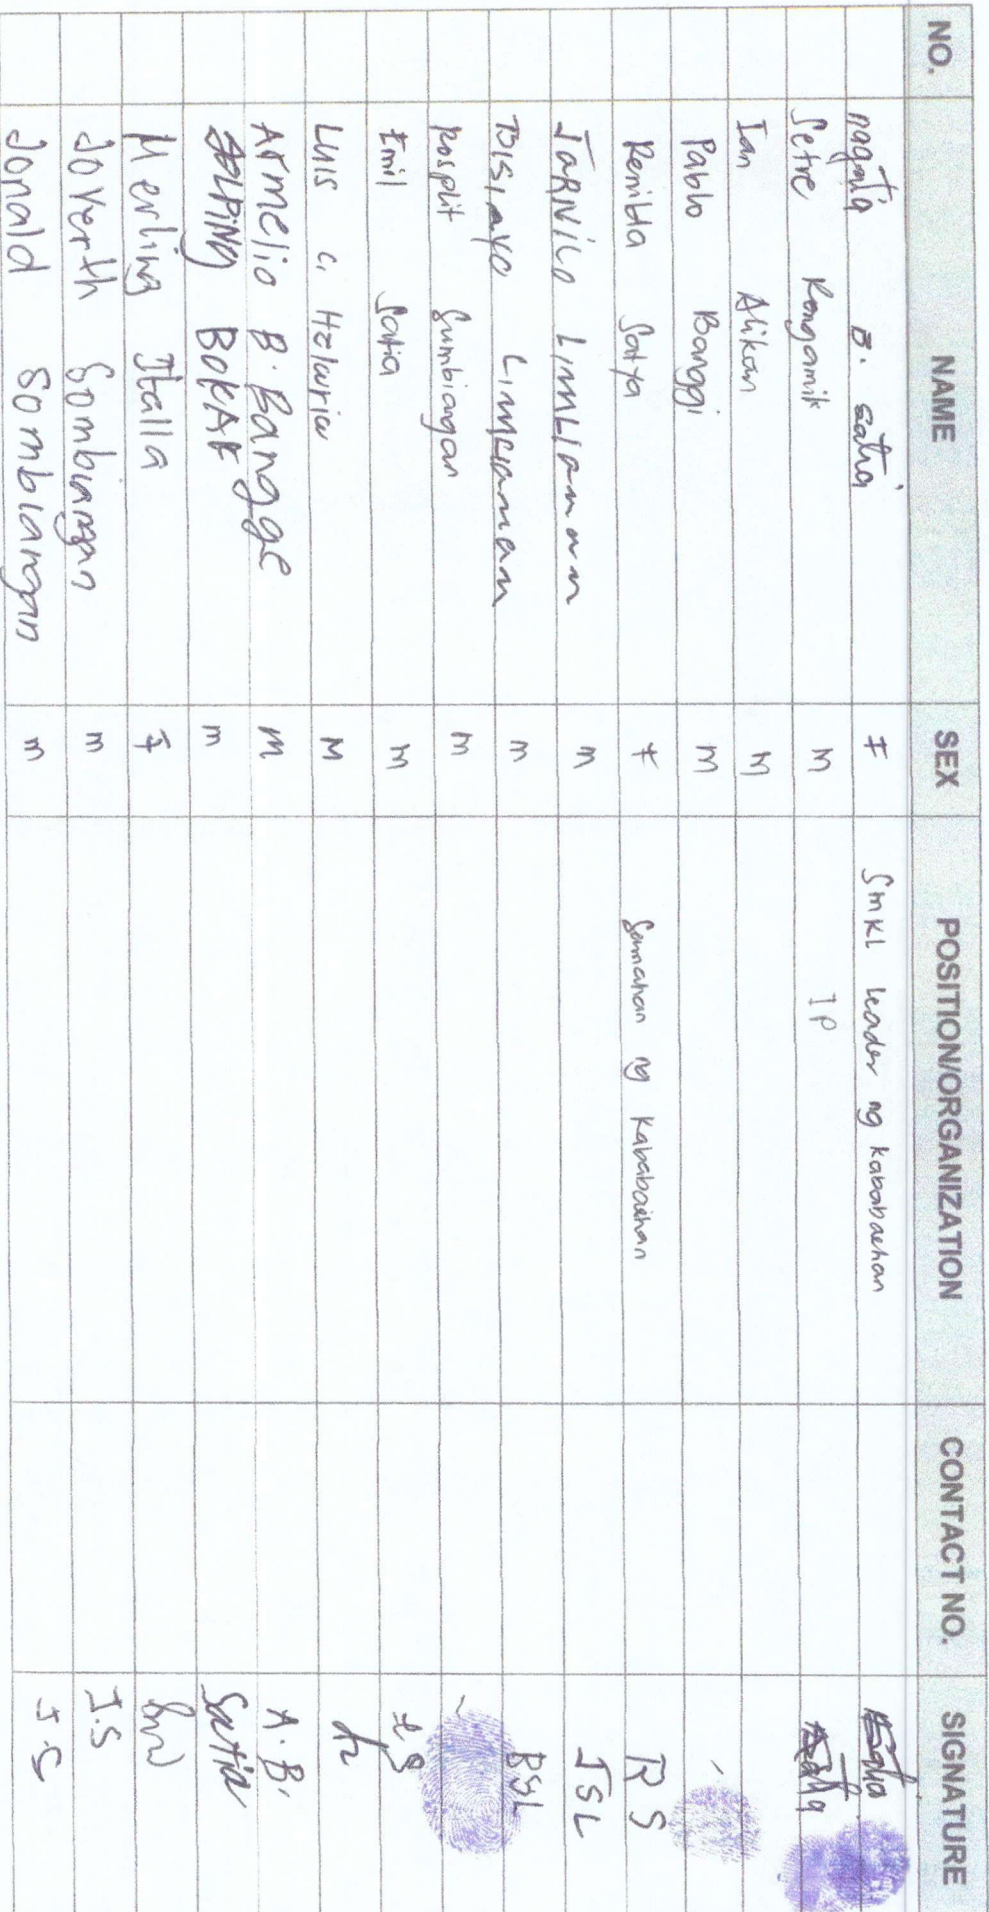 NO. NAME SEX POSITION/ORGANIZATION CONTACT NO. SIGNATURE
B. Satia F SMKL leader ng kababaehan
Setre Rangamik M IP
Ian Alikan M
Pablo Banggi M
Remibla Satya F Samahan ng Kababaihan R S
JARNILO LIMLIAMAN M JSL
BISIAYO LIMLIAMAN M BSL
Rosplit Sumbiangan M
Emil Satia M E.S
Luis C. M
Armelio B. Bangge M A.B.
BOKAK M Satia
Merling Italla F
Joverth Sombiangan M J.S
Jonald Sombiangan M J.S